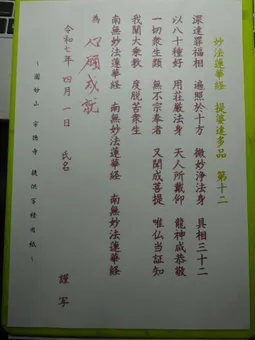 妙法蓮華経　提婆達多品　第十二
深達罪福相　遍照於十方　微妙浄法身　具相三十二
以八十種好　用荘厳法身　天人所戴仰　龍神咸恭敬
一切衆生類　無不宗奉者　又聞成菩提　唯仏当証知
我闡大乗教　度脱苦衆生
南無妙法蓮華経　南無妙法蓮華経　南無妙法蓮華経
為　心願成就
令和七年　四月　一日　氏名　謹写
～　圓妙山　提供写経用紙　～